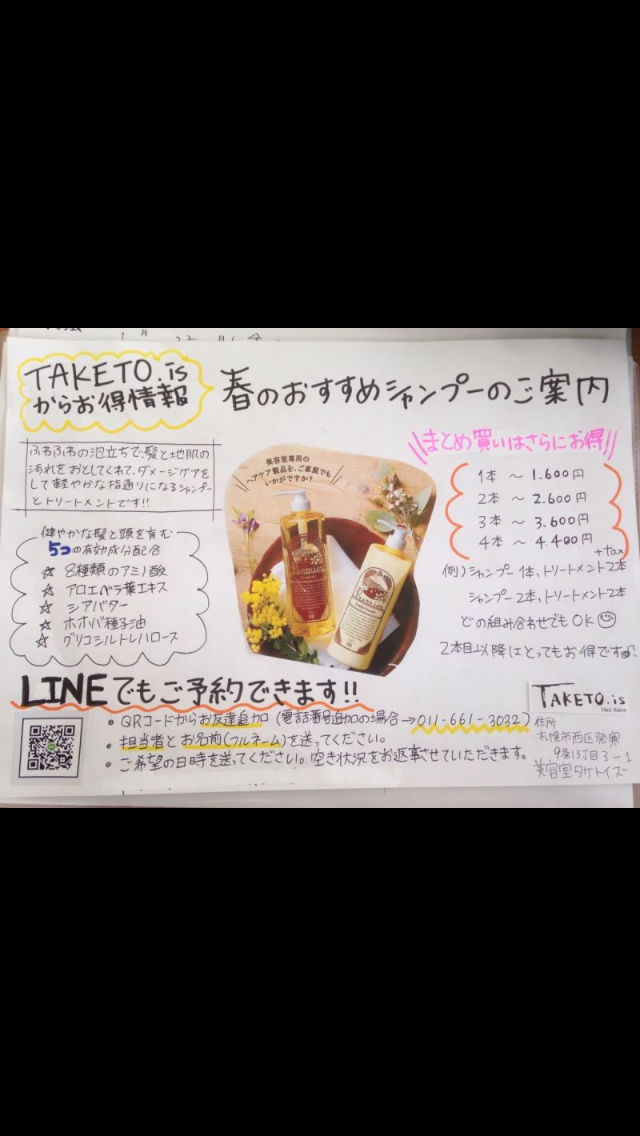 TAKETO.is
からお得情報
春のおすすめシャンプーのご案内
ふわふわの泡立ちで、髪と地肌の
汚れをおとしてくれて、ダメージケアを
して軽やかな指通りになるシャンプー
とトリートメントです!!
健やかな髪と頭を育む
5つの有効成分配合
☆ 8種類のアミノ酸
☆ アロエベラ葉エキス
☆ シアバター
☆ ホホバ種子油
☆ グリコシルトレハロース
美容室専用の
ヘアケア製品を、ご家庭でも
いかがですか?
まとめ買いはさらにお得
1本 ～ 1.600円
2本 ～ 2.600円
3本 ～ 3.600円
4本 ～ 4.400円
+tax
例)シャンプー1本、トリートメント2本
シャンプー2本、トリートメント2本
どの組み合わせでもOK
2本目以降はとってもお得です
LINEでもご予約できます!!
・QRコードからお友達追加(電話番号追加の場合→011-661-3032)
・担当者とお名前(フルネーム)を送ってください。
・ご希望の日時を送ってください。空き状況をお返事させていただきます。
TAKETO.is
Hair Salon
住所
札幌市西区発寒
9条13丁目3-1
美容室タケトイズ